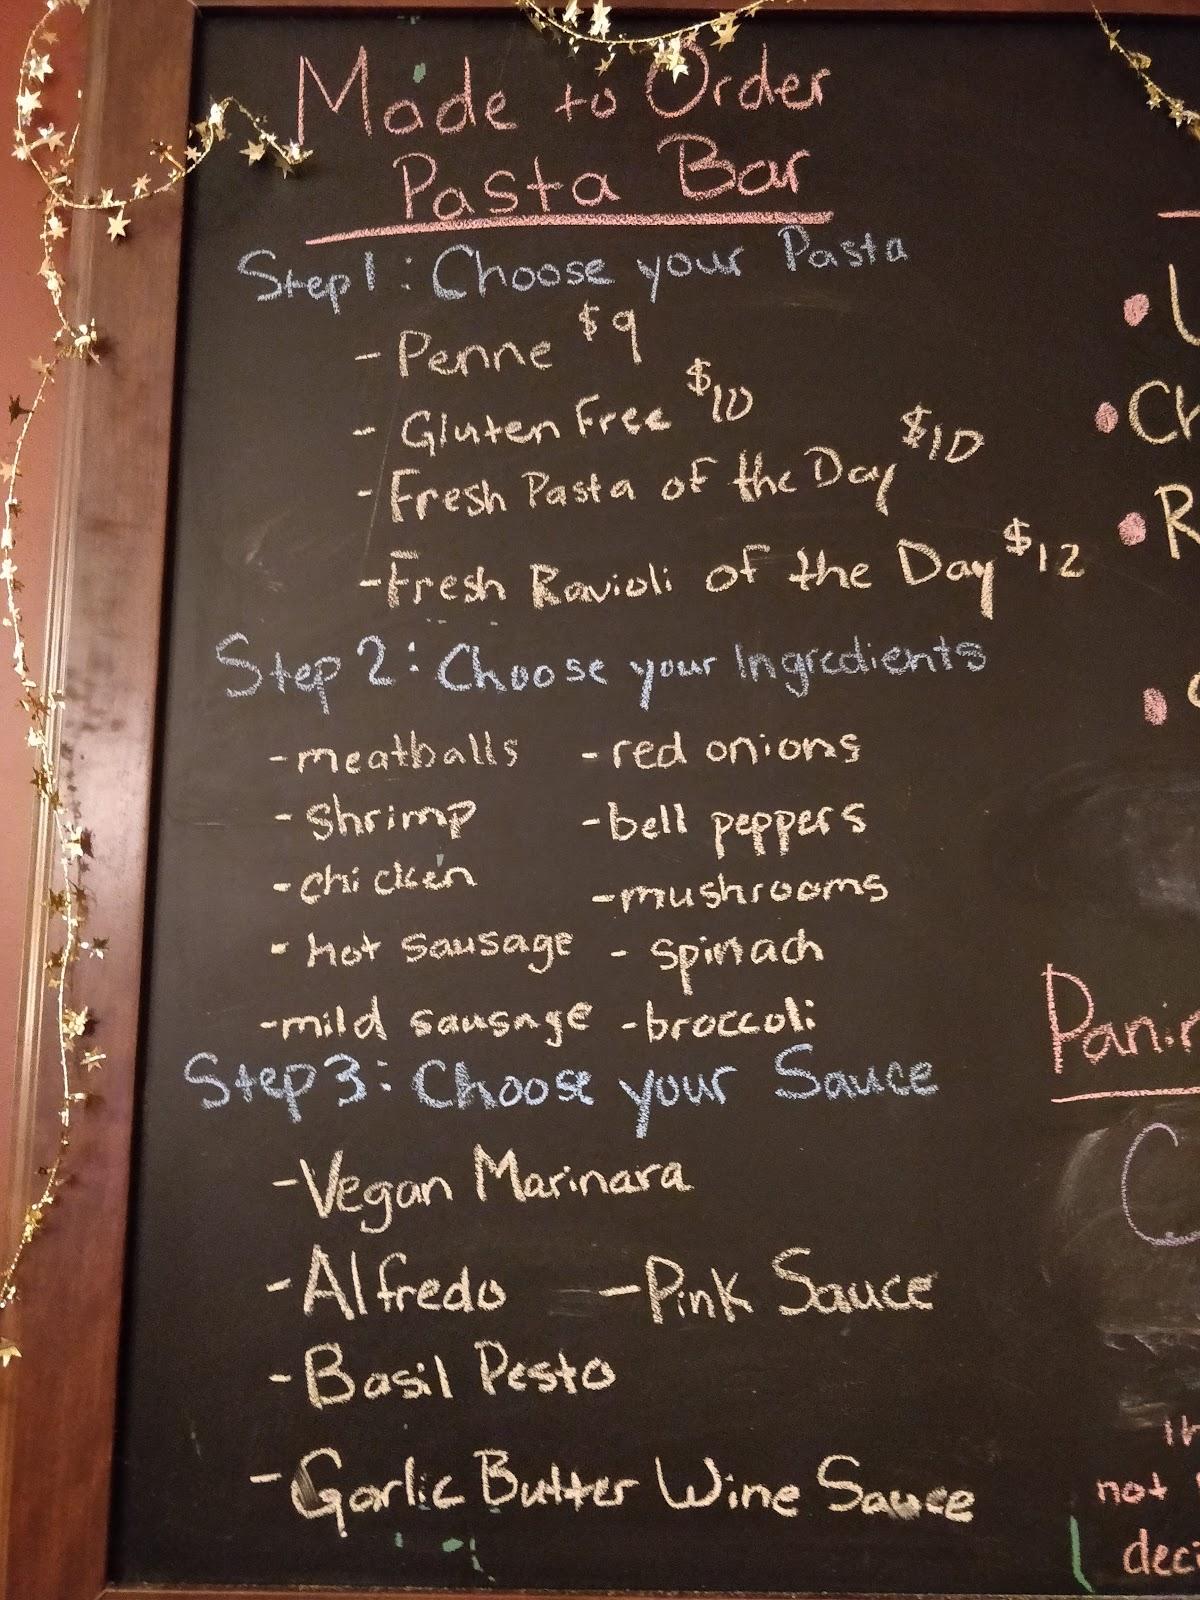 Made to Order
Pasta Bar
Step 1: Choose your Pasta
- Penne $9
- Gluten Free $10
- Fresh Pasta of the Day $10
- Fresh Ravioli of the Day $12
Step 2: Choose your Ingredients
- meatballs - red onions
- shrimp - bell peppers
- chicken - mushrooms
- hot sausage - spinach
- mild sausage - broccoli
Step 3: Choose your Sauce
- Vegan Marinara
- Alfredo - Pink Sauce
- Basil Pesto
- Garlic Butter Wine Sauce
not